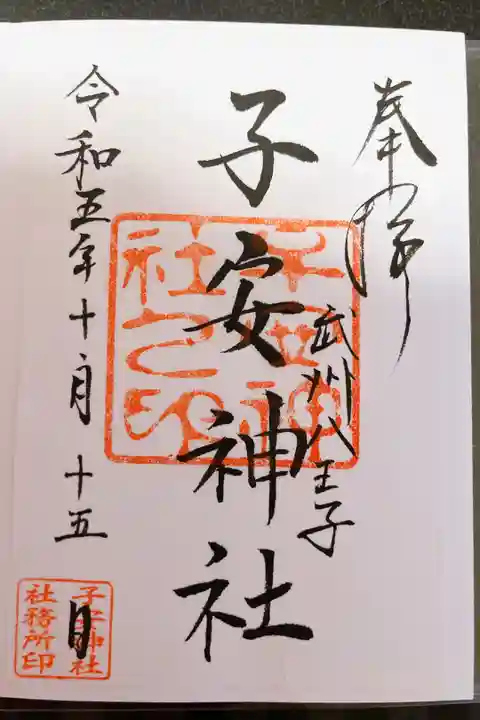 奉拝
武州八王子
子安神社
令和五年十月十五日
子安神社
社務所印